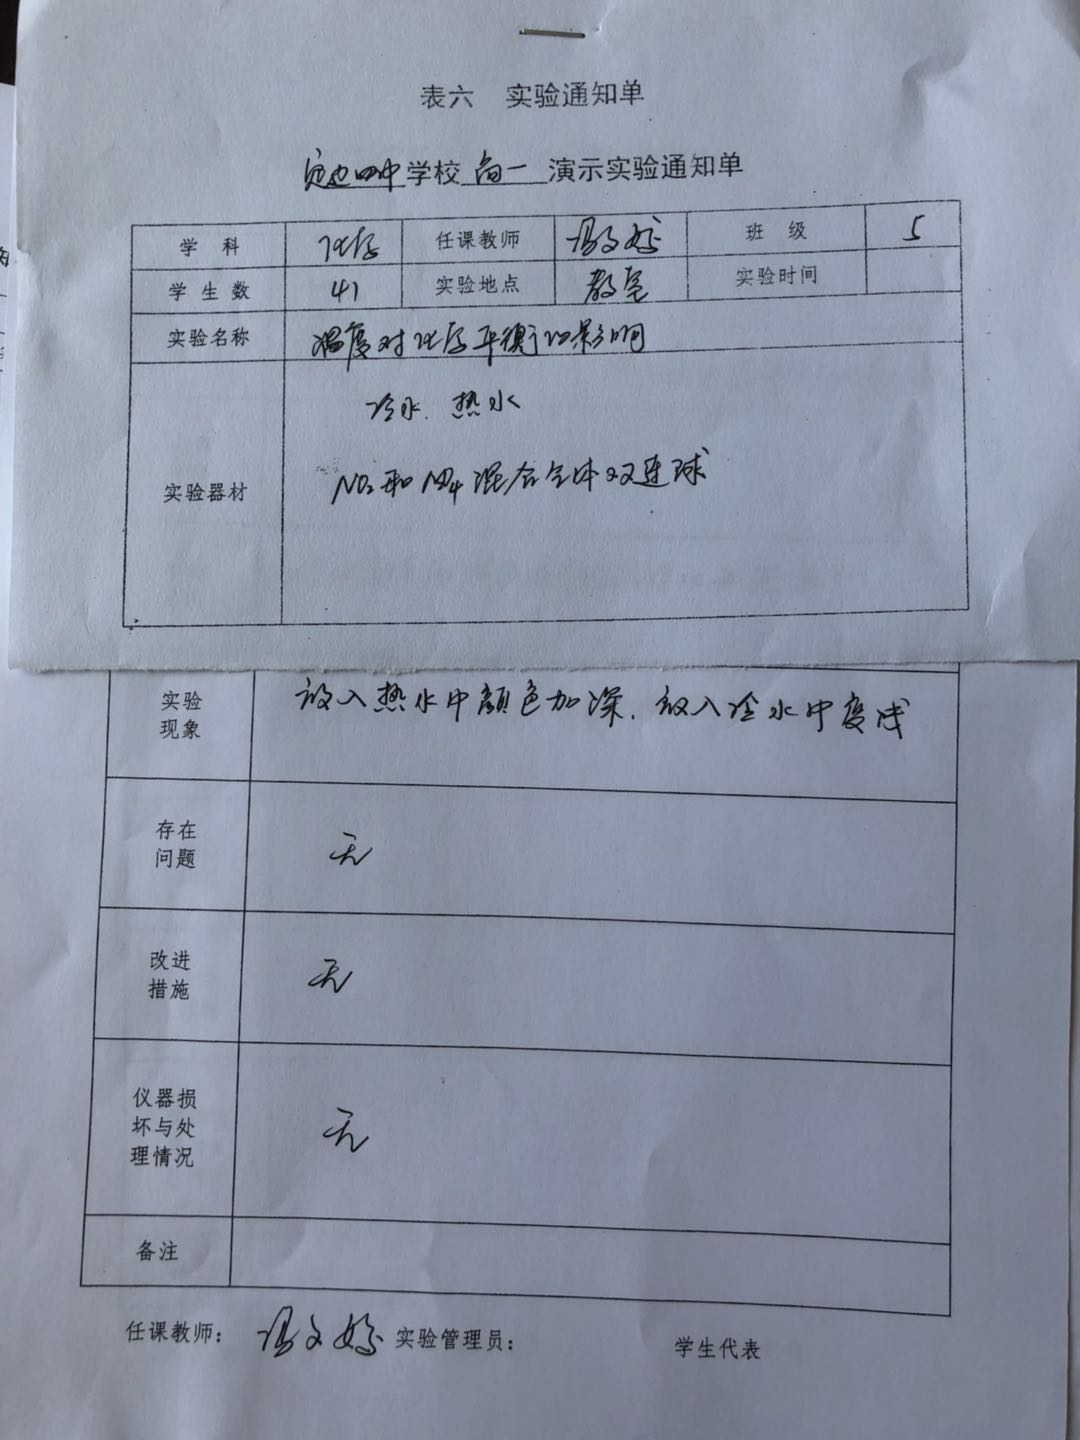 表六 实验通知单
四中学校 高一 演示实验通知单
学科 化学 任课教师 冯文婷 班级 5
学生数 41 实验地点 教室 实验时间
实验名称 温度对化学平衡的影响
冷水、热水
实验器材 NO₂和N₂O₄混合气体双连球
实验现象 放入热水中颜色加深，放入冷水中变浅
存在问题 无
改进措施 无
仪器损坏与处理情况 无
备注
任课教师：冯文婷 实验管理员： 学生代表